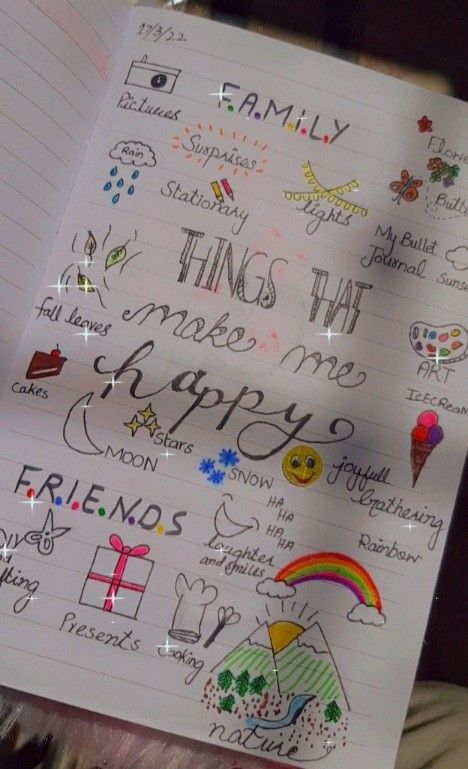 17/3/22
Pictures
F.A.M.I.L.Y
Rain
Surprises
Stationary
lights
My Bullet
Journal
THINGS THAT
make me
happy
fall leaves
ART
Cakes
ICECReam
MOON
Stars
SNOW
joyfull
Gathering
F.R.I.E.N.D.S
HA
HA
HA
HA
laughter
and smiles
Rainbow
Presents
Cooking
nature